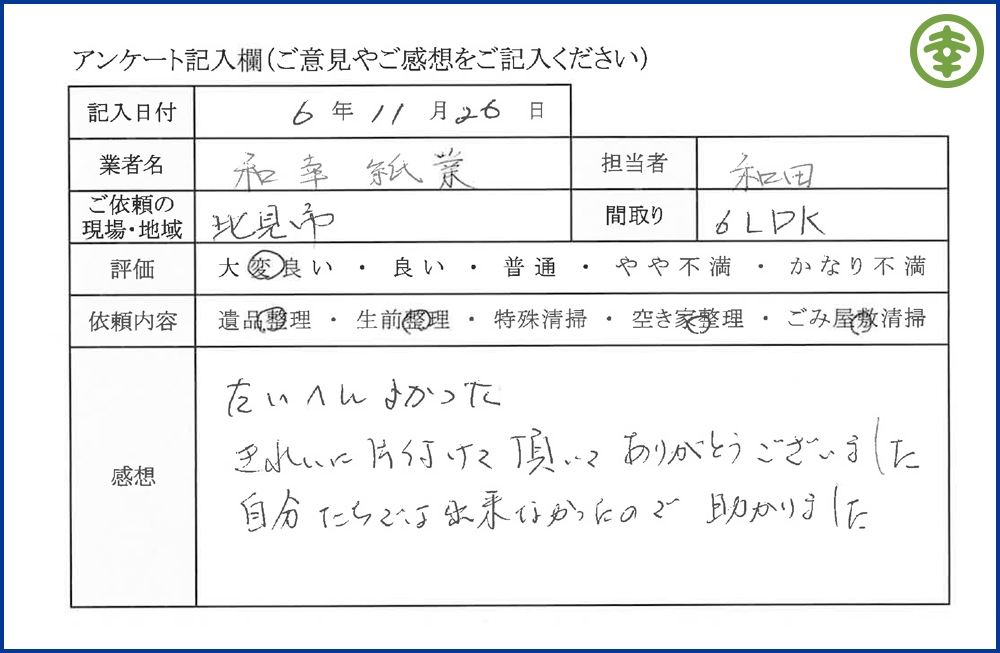 幸
アンケート記入欄(ご意見やご感想をご記入ください)
記入日付 6年11月26日
業者名 和幸紙業 担当者 和田
ご依頼の現場・地域 北見市 間取り 6LDK
評価 大変良い ・ 良い ・ 普通 ・ やや不満 ・ かなり不満
依頼内容 遺品整理 ・ 生前整理 ・ 特殊清掃 ・ 空き家整理 ・ ごみ屋敷清掃
感想
たいへんよかった
きれいに片付けて頂いてありがとうございました
自分たちでは出来なかったので助かりました